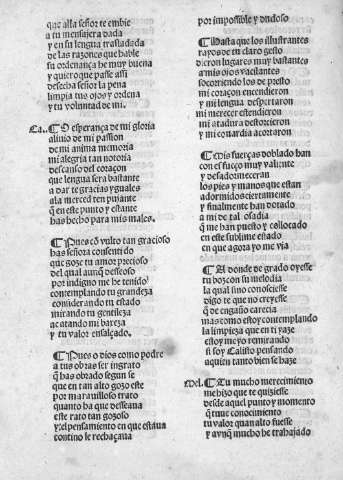 que alla señor te embie
a tu mensajera dada
y en su lengua trasladada
de las razones que hable
su ordenança he muy buena
y quiero que passe assi
desecha señor la pena
limpia tus ojos y ordena
y tu voluntad de mi.
Ca. ¶O esperança de mi gloria
alivio de mi passion
de mi anima memoria
mi alegria tan notoria
descanso del coraçon
que lengua sera bastante
a dar te gracias yguales
a la merced ten pujante
q̃ en este punto y estante
has hecho para mis males.
¶Pues cõ vulto tan gracioso
has señora consentido
que goze tu amor precioso
del qual aunq̃ desseoso
por indigno me he tenido
contemplando tu grandeza
considerando tu estado
mirando tu gentileza
acatando mi bareza
y tu valor ensalçado.
¶Pues o dios como podre
a tus obras ser ingrato
q̃ has obrado segun se
que en tan alto gozo este
por maravilloso trato
quanto ha que desseava
este rato tan gozoso
y el pensamiento en que estava
contino le rechaçava
por impossible y dudoso
¶Hasta que los illustrantes
rayos de tu claro gesto
dieron lugares muy bastantes
a mis ojos vacilantes
socorriendo los de presto
mi coraçon encendieron
y mi lengua despertaron
mi merecer estendieron
mi atadura destorcieron
y mi covardia acortaron
¶Mis fuerças doblado han
con el fuego muy valiente
y desadormecer an
los pies y manos que estan
adormidos ciertamente
y finalmente han dotado
a mi de tal osadia
q̃ me han puesto y collocado
en este sublime estado
en que agora yo me via
¶A donde de grado oyesse
tu boz con su melodia
la qual si no conosciesse
digo te que no creyesse
q̃ de engaño carecia
mas como estoy contemplando
la limpieza que en ti yaze
estoy me yo remirando
si soy Calisto pensando
a quien tanto bien se haze
Mel. ¶Tu mucho merecimiento
me hizo que te quisiesse
desde aquel punto y momento
q̃ tuve conocimiento
tu valor quan alto fuesse
y aunq̃ mucho he trabajado